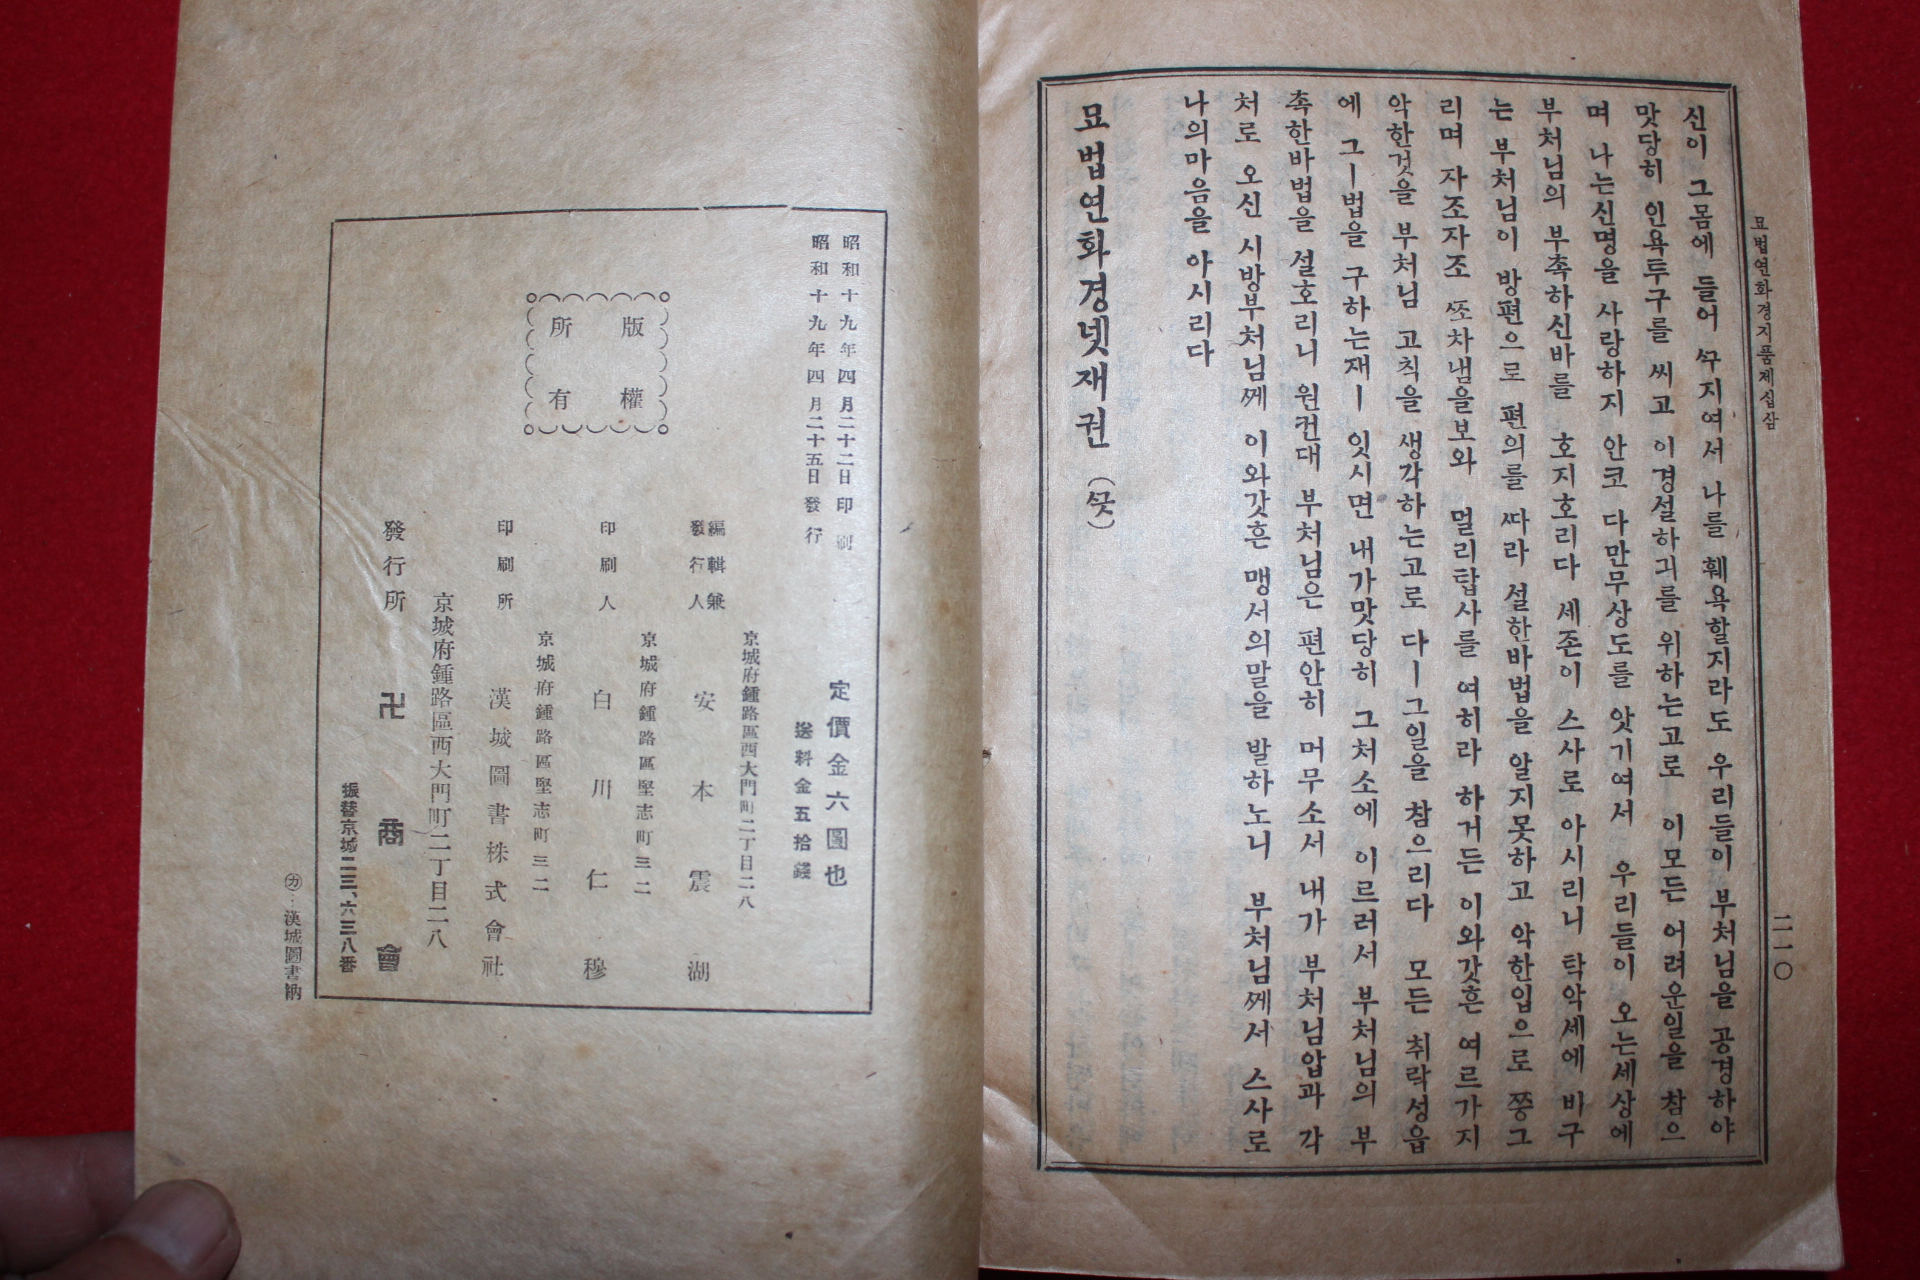 묘법연화경지품제십삼
二一〇
신이 그몸에 들어 ᄭᅮ지여서 나를 훼욕할지라도 우리들이 부처님을 공경하야
맛당히 인욕투구를 씨고 이경설하긔를 위하는고로 이모든 어려운일을 참으
며 나는신명을 사랑하지 안코 다만무상도를 앗기여서 우리들이 오는세상에
부처님의 부촉하신바를 호지호리다 세존이 스사로 아시리니 탁악세에 비구
는 부처님이 방편으로 편의를 ᄯᅡ라 설한바법을 알지못하고 악한입으로 ᄶᅵᆼ그
리며 자조자조 ᄯᅩ차냄을보와 멀리탑사를 여히라 하거든 이와갓흔 여르가지
악한것을 부처님 고칙을 생각하는고로 다ㅣ그일을 참으리다 모든 취락성읍
에 그ㅣ법을 구하는재ㅣ 잇시면 내가맛당히 그처소에 이르러서 부처님의 부
촉한바법을 설호리니 원컨대 부처님은 편안히 머무소서 내가 부처님압과 각
처로 오신 시방부처님ᄭᅦ 이와갓흔 맹서의말을 발하노니 부처님ᄭᅦ서 스사로
나의마음을 아시리다
묘법연화경넷재권 (ᄭᅳᆺ)
昭和十九年四月二十二日 印刷
昭和十九年四月二十五日 發行
版權
所有
定價金六圓也
送料金五拾錢
京城府鍾路區西大門町二丁目二八
編輯兼
發行人 安本震湖
京城府鍾路區堅志町三二
印刷人 白川仁穆
京城府鍾路區堅志町三二
印刷所 漢城圖書株式會社
京城府鍾路區西大門町二丁目二八
發行所 卍商會
振替京城二三、六三八番
㋕‥漢城圖書納